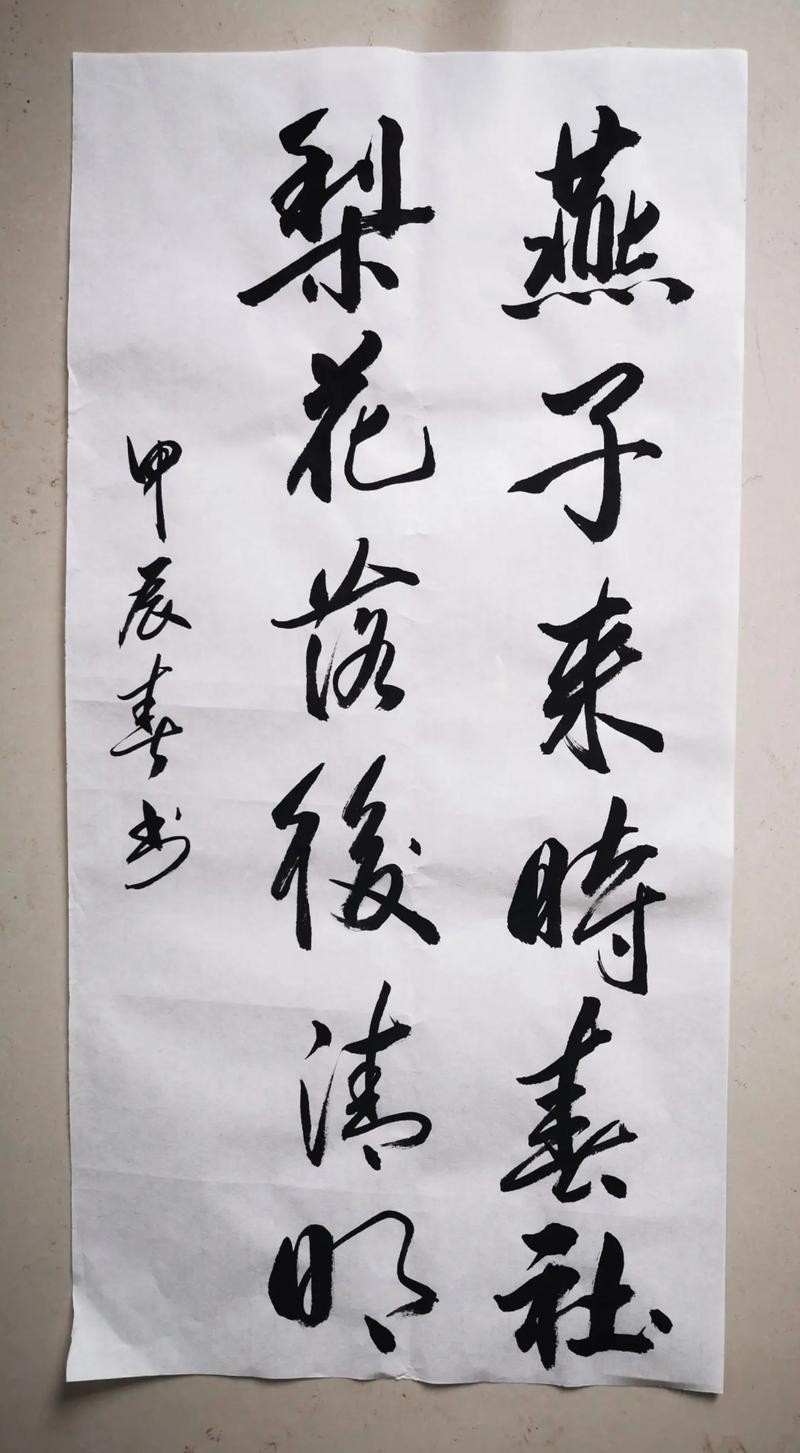 燕子来時春社
梨花落後清明
甲辰春书